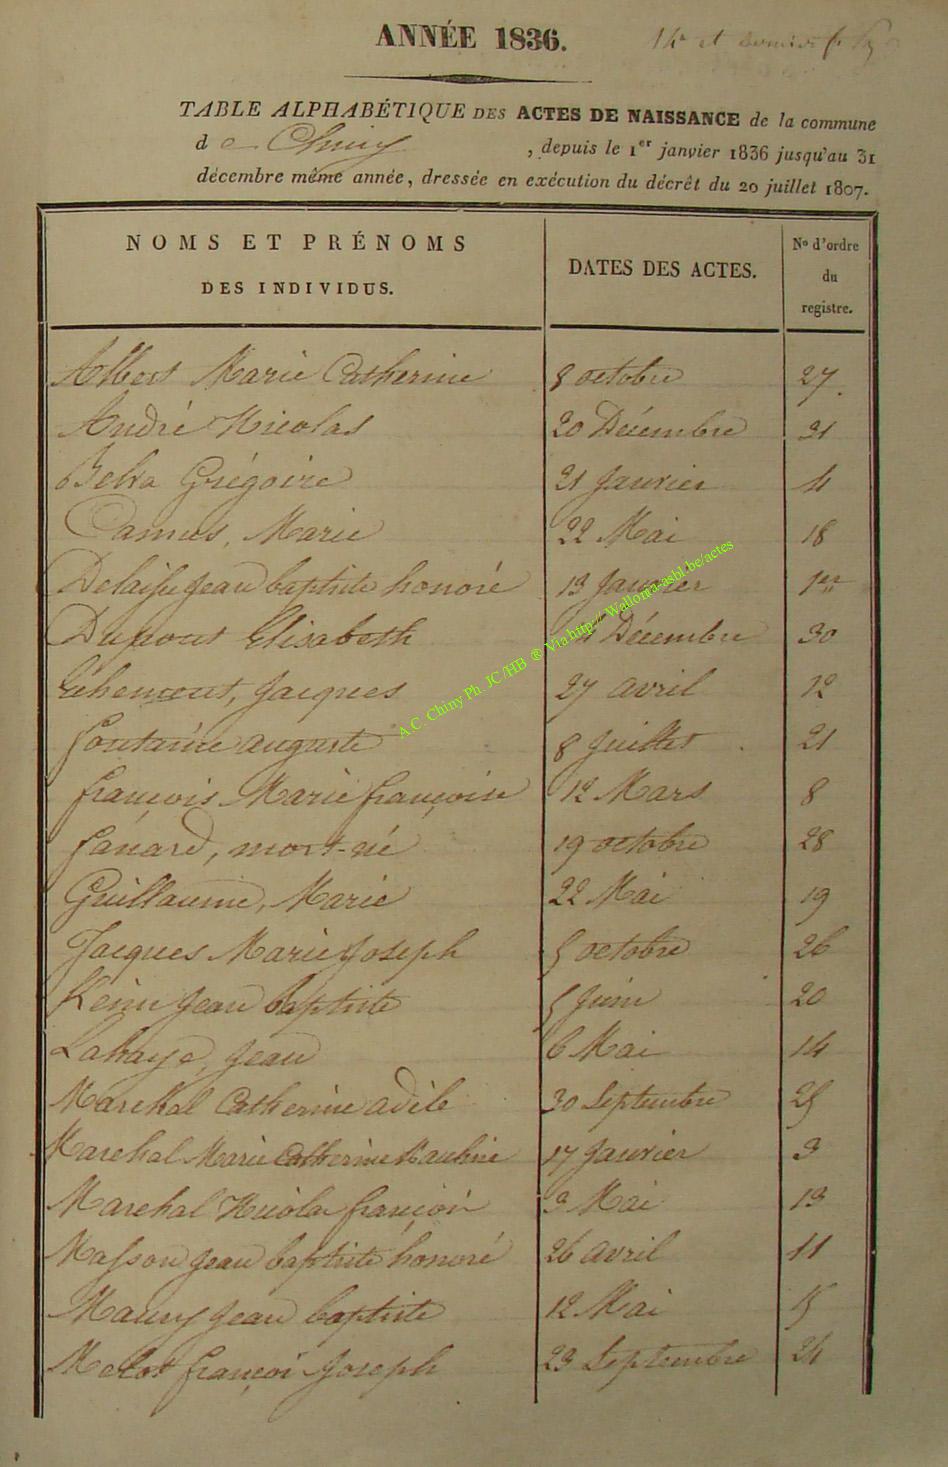 ANNÉE 1836.
14e et dernier f.
TABLE ALPHABÉTIQUE DES ACTES DE NAISSANCE de la commune
de Chiny, depuis le 1er janvier 1836 jusqu'au 31
décembre même année, dressée en exécution du décrêt du 20 juillet 1807.
NOMS ET PRÉNOMS DES INDIVIDUS. DATES DES ACTES. No d'ordre du registre.
Albert Marie Catherine 8 octobre 27.
André Nicolas 20 Décembre 31
Belva Grégoire 21 Janvier 4
Camus, Marie 22 Mai 18
Jean baptiste honoré 13 Janvier 1er
Dupont Elisabeth Décembre 30
Jacques 27 avril 12
fontaine auguste 8 Juillet 21
françois Marie françoise 12 Mars 8
fánard, mort-né 19 octobre 28
Guillaume, Marie 22 Mai 19
Jacques Marie Joseph 5 octobre 26
Jean baptiste 5 Juin 20
Lahaye, Jean 6 Mai 14
Marehal Catherine adèle 30 Septembre 25
Marehal Marie Catherine Pauline 17 Janvier 3
Marehal Nicolas françois 3 Mai 13
Masson Jean baptiste honoré 26 avril 11
Mauny Jean baptiste 12 Mai 15
Melot françoi Joseph 23 Septembre 24
A.C. Chiny Ph. JC/HB ® Via http:// Wallonia-asbl.be/actes